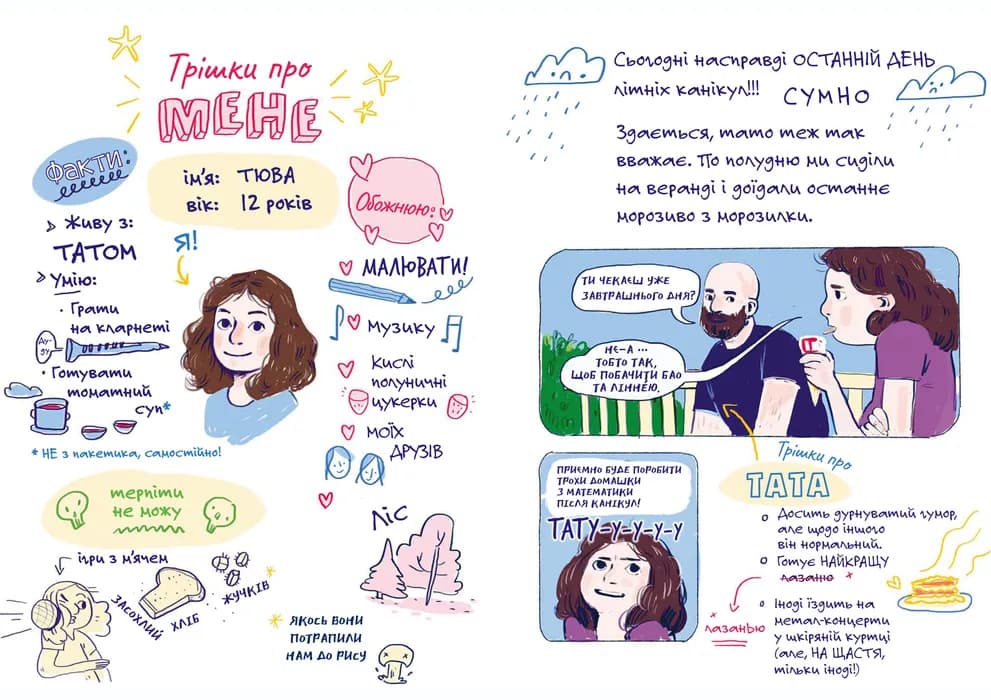 Трішки про
МЕНЕ
Факти:
ім'я: ТЮВА
вік: 12 років
Обожнюю:
Я!
Живу з:
ТАТОМ
Умію:
· Грати
на кларнеті
Ду-
ду
· Готувати
томатний
суп*
* НЕ з пакетика, самостійно!
МАЛЮВАТИ!
музику
Кислі
полуничні
цукерки
моїх
ДРУЗІВ
ліс
терпіти
не можу
ігри з м'ячем
ЗАСОХЛИЙ
ХЛІБ
ЖУЧКІВ *
* ЯКОСЬ ВОНИ
ПОТРАПИЛИ
НАМ ДО РИСУ
Сьогодні насправді ОСТАННІЙ ДЕНЬ
літніх канікул!!!
СУМНО
Здається, тато теж так
вважає. По полудню ми сиділи
на веранді і доїдали останнє
морозиво з морозилки.
ТИ ЧЕКАЄШ УЖЕ
ЗАВТРАШНЬОГО ДНЯ?
НЕ-А ...
ТОБТО ТАК,
ЩОБ ПОБАЧИТИ БАО
ТА ЛІННЕЮ.
ПРИЄМНО БУДЕ ПОРОБИТИ
ТРОХИ ДОМАШКИ
З МАТЕМАТИКИ
ПІСЛЯ КАНІКУЛ!
ТАТУ-У-У-У-У
Трішки про
ТАТА
Досить дурнуватий гумор,
але щодо іншого
він нормальний.
Готує НАЙКРАЩУ
лазаню
лазанью
Іноді їздить на
метал-концерти
у шкіряній куртці
(але, НА ЩАСТЯ,
тільки іноді!)